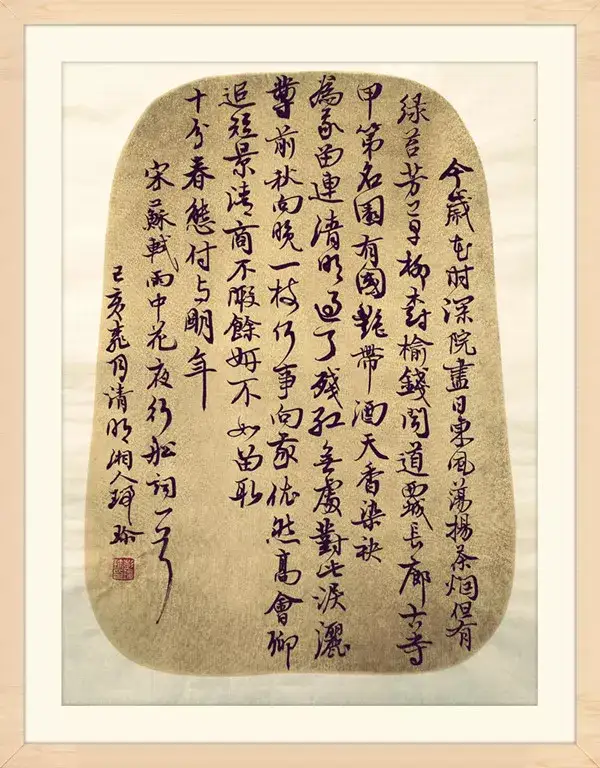 今歲花时深院盡日東風蕩揚茶烟但有
緑苔芳草柳絮榆錢聞道西城長廊古寺
甲第名園有國艷帶酒天香染袂
為我留連清明過了殘紅無處對此淚灑
尊前秋向晚一枝何事向我依然高會聊
追短景清商不暇餘妍不如留取
十分春態付与明年
宋蘇軾雨中花夜行船詞一首
己亥春月清明湘人